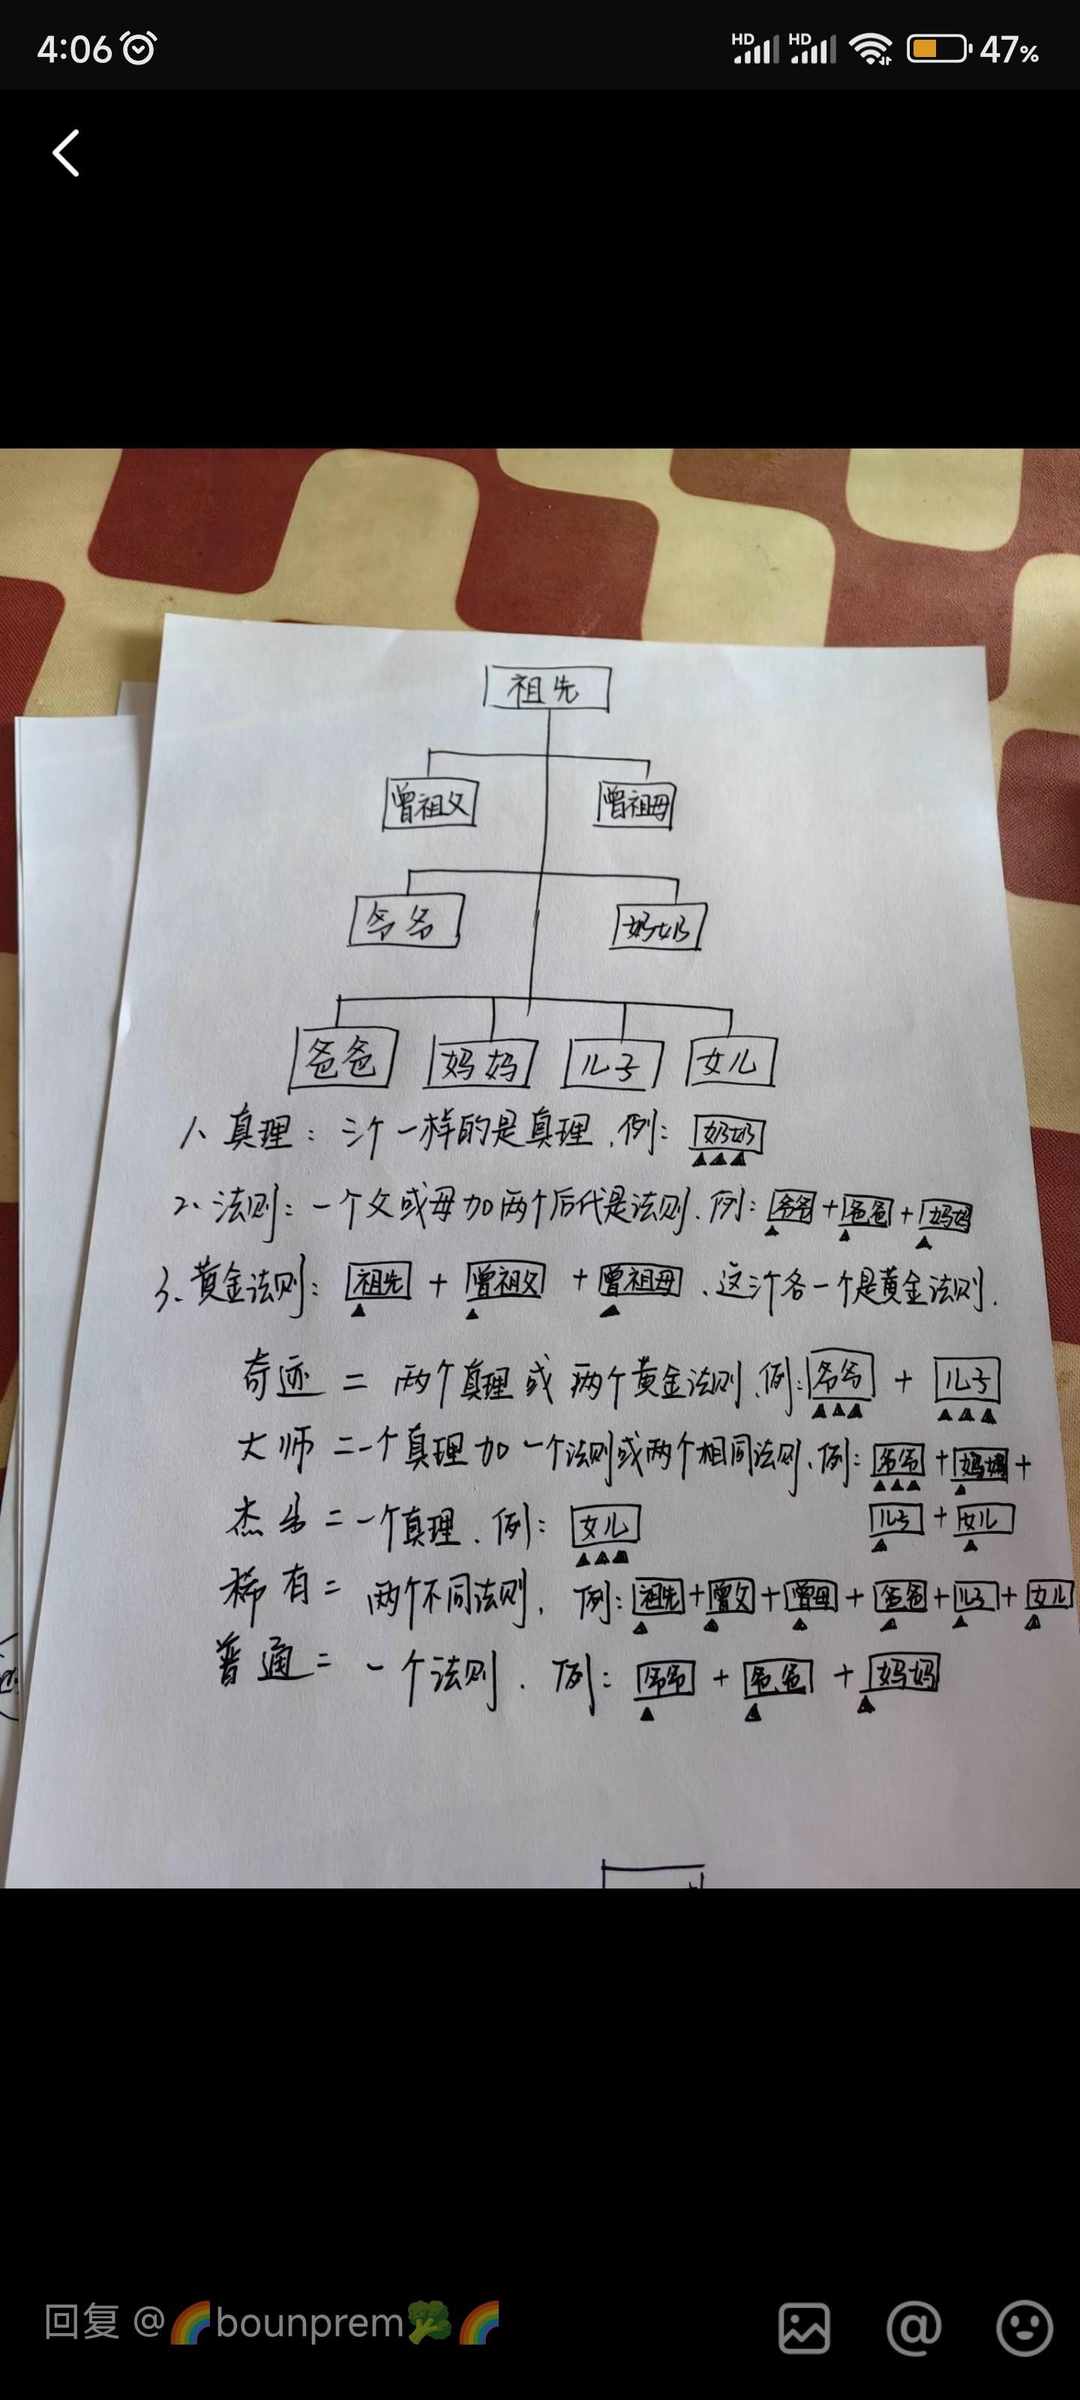 4:06
HD HD 47%
祖先
曾祖父 曾祖母
爷爷 奶奶
爸爸 妈妈 儿子 女儿
1、真理：三个一样的是真理、例：奶奶
2、法则：一个父或母加两个后代是法则、例：爷爷+爸爸+妈妈
3、黄金法则：祖先 + 曾祖父 + 曾祖母、这三个各一个是黄金法则.
奇迹 = 两个真理或两个黄金法则、例：爷爷 + 儿子
大师 = 一个真理加一个法则或两个相同法则、例：爷爷+妈妈+
儿子+女儿
杰出 = 一个真理、例：女儿
稀有 = 两个不同法则、例：祖先+曾父+曾母+爸爸+儿子+女儿
普通 = 一个法则、例：爷爷 + 爸爸 + 妈妈
回复 @🌈bounprem🥦🌈